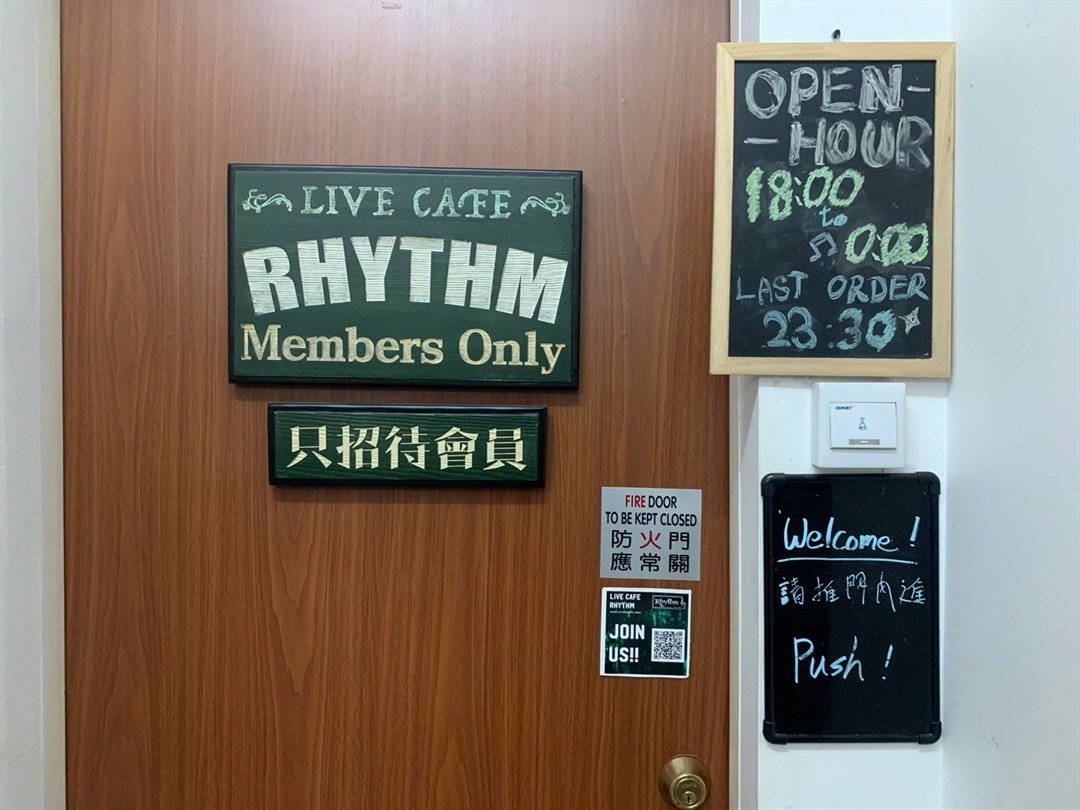 LIVE CAFE
RHYTHM
Members Only
只招待會員
OPEN-
-HOUR
18:00
to
0:00
LAST ORDER
23:30
FIRE DOOR
TO BE KEPT CLOSED
防火門
應常關
LIVE CAFE
RHYTHM
Rhythm
JOIN
US!!
Welcome!
請推門内進
Push!